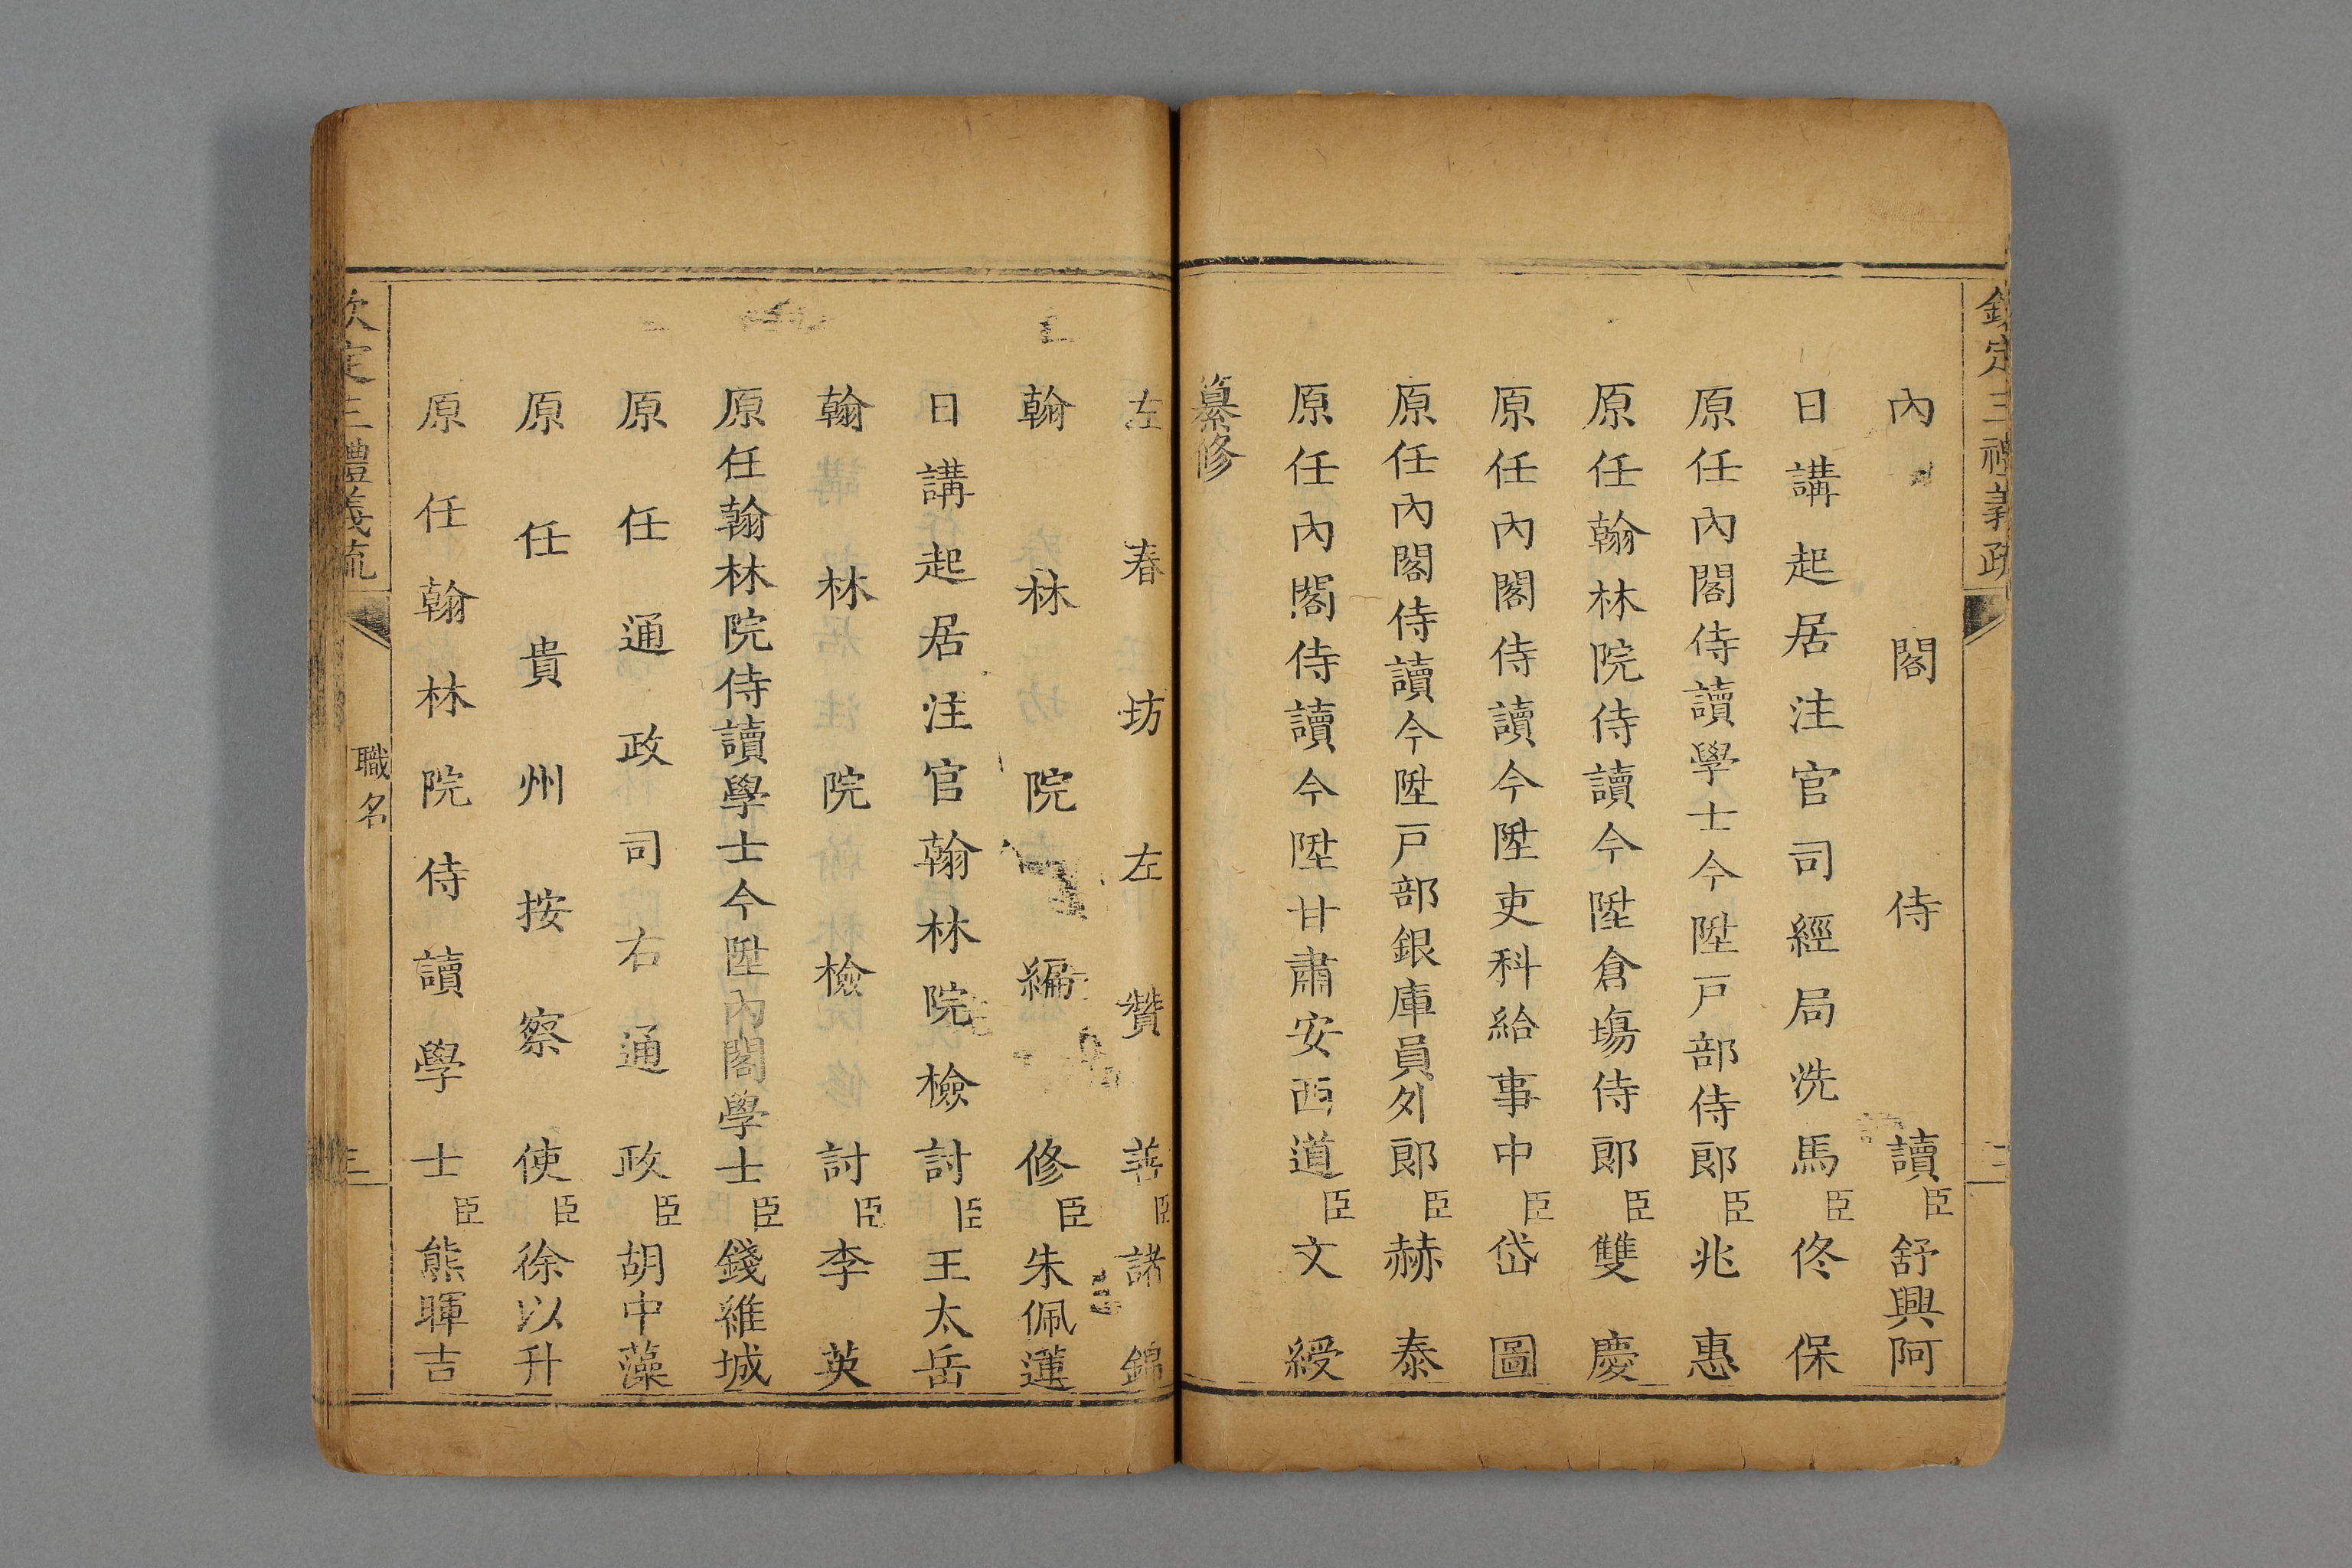 欽定三禮義疏
內閣侍讀臣舒興阿
日講起居注官司經局洗馬臣佟保
原任內閣侍讀學士今陞戶部侍郎臣兆惠
原任翰林院侍讀今陞倉場侍郎臣雙慶
原任內閣侍讀今陞吏科給事中臣岱圖
原任內閣侍讀今陞戶部銀庫員外郎臣赫泰
原任內閣侍讀今陞甘肅安西道臣文綬
纂修
左春坊左贊善臣諸錦
翰林院編修臣朱佩蓮
日講起居注官翰林院檢討臣王太岳
翰林院檢討臣李英
原任翰林院侍讀學士今陞內閣學士臣錢維城
原任通政司右通政臣胡中藻
原任貴州按察使臣徐以升
原任翰林院侍讀學士臣熊暉吉
欽定三禮義疏
職名
三